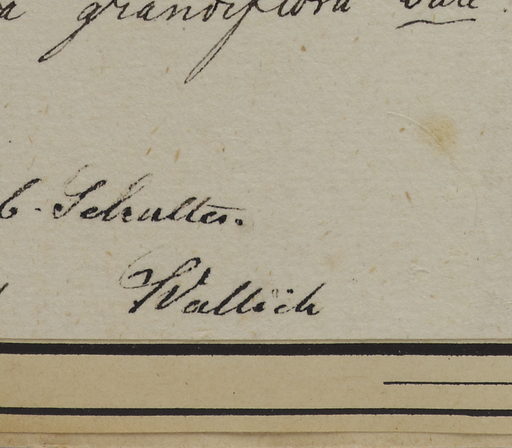 a grandiflora
C. Schultes.
Wallich